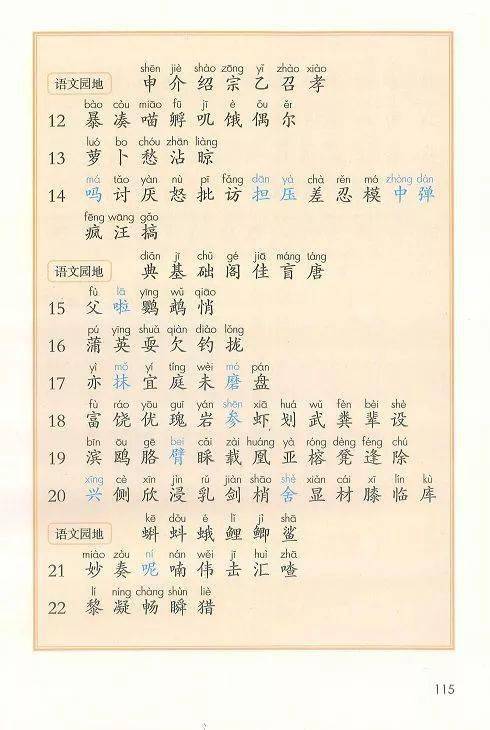 shēn jiè shào zōng yǐ zhào xiào
语文园地 申 介 绍 宗 乙 召 孝
bào còu miāo fū jī è ǒu ěr
12 暴 凑 喵 孵 叽 饿 偶 尔
luó bo chóu zhān liàng
13 萝 卜 愁 沾 晾
má tǎo yàn nù pī fǎng dān yā chà rěn mó zhòng dàn
14 吗 讨 厌 怒 批 访 担 压 差 忍 模 中 弹
fēng wāng gǎo
疯 汪 搞
diǎn jī chǔ gé jiā máng táng
语文园地 典 基 础 阁 佳 盲 唐
fù lā yīng wǔ qiāo
15 父 啦 鹦 鹉 悄
pú yīng shuǎ qiàn diào lǒng
16 蒲 英 耍 欠 钓 拢
yì mǒ yí tíng wèi mó pán
17 亦 抹 宜 庭 未 磨 盘
fù ráo yōu guī yán shēn xiā huá wǔ fèn bèi shè
18 富 饶 优 瑰 岩 参 虾 划 武 粪 辈 设
bīn ōu gē bei cǎi zài huáng yà róng dèng féng chú
19 滨 鸥 胳 臂 睬 载 凰 亚 榕 凳 逢 除
xīng cè xīn jìn rǔ jiàn shāo shě xiǎn cái xī lín kù
20 兴 侧 欣 浸 乳 剑 梢 舍 显 材 膝 临 库
kē dǒu é lǐ jì shā
语文园地 蝌 蚪 蛾 鲤 鲫 鲨
miào zòu ní nán wěi jī huì zhā
21 妙 奏 呢 喃 伟 击 汇 喳
lí níng chàng shùn liè
22 黎 凝 畅 瞬 猎
115